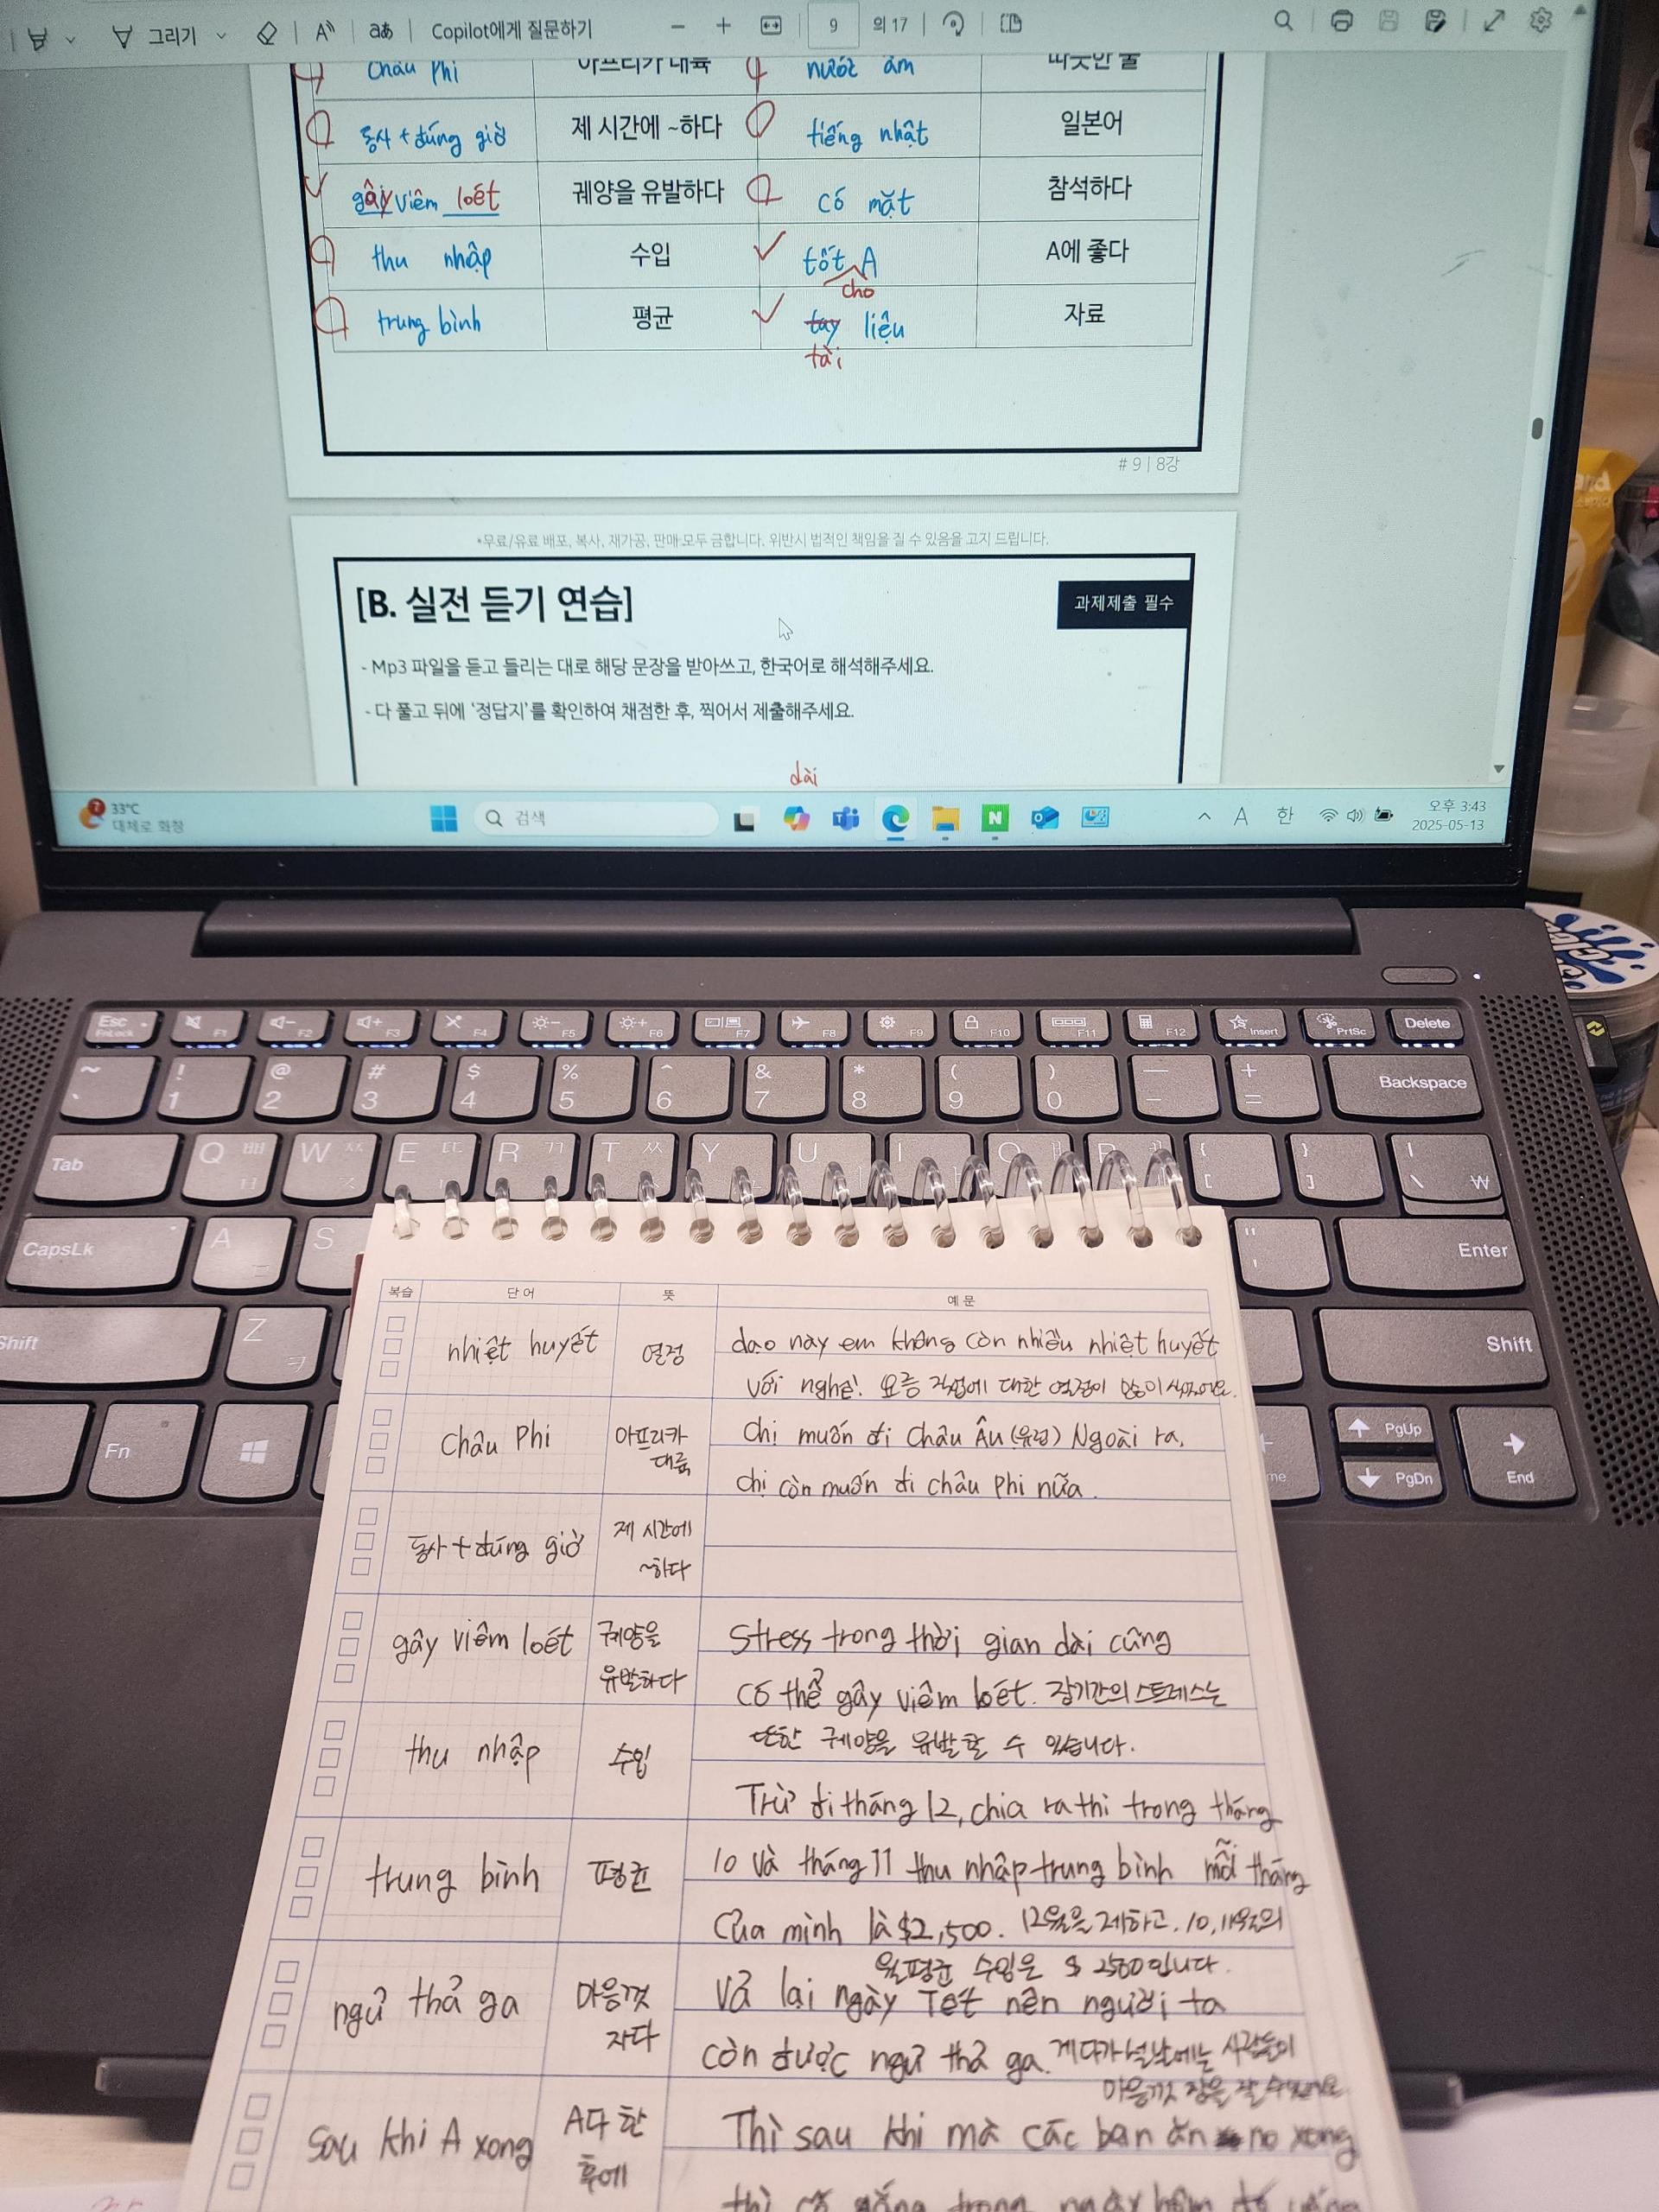 그리기
aあ
Copilot에게 질문하기
9 의 17
Châu Phi 아프리카 대륙 nước ấm 따뜻한 물
동사 + đúng giờ 제 시간에 ~하다 tiếng nhật 일본어
gây viêm loét 궤양을 유발하다 có mặt 참석하다
thu nhập 수입 tốt A A에 좋다
cho
trung bình 평균 tay liệu 자료
tài
# 9 | 8강
*무료/유료 배포, 복사, 재가공, 판매 모두 금합니다. 위반시 법적인 책임을 질 수 있음을 고지 드립니다.
[B. 실전 듣기 연습] 과제제출 필수
- Mp3 파일을 듣고 들리는 대로 해당 문장을 받아쓰고, 한국어로 해석해주세요.
- 다 풀고 뒤에 '정답지'를 확인하여 채점한 후, 찍어서 제출해주세요.
dài
33°C
대체로 화창
검색
A 한
오후 3:43
2025-05-13
Esc FnLock F1 F2 F3 F4 F5 F6 F7 F8 F9 F10 F11 F12 Insert PrtSc Delete
~ ! @ # $ % ^ & * ( ) — +
` 1 2 3 4 5 6 7 8 9 0 - = Backspace
Tab Q ㅃ W ㅉ E ㄸ R ㄲ T ㅆ Y U I O P { [ } ] | \ ₩
CapsLk A S " ' Enter
Shift Z ㅋ Shift
Fn PgUp PgDn End
복습 단어 뜻 예문
nhiệt huyết 열정 dạo này em không còn nhiều nhiệt huyết
với nghề! 요즘 직업에 대한 열정이 많이 식었어요.
Châu Phi 아프리카 대륙 Chị muốn đi Châu Âu (유럽) Ngoài ra,
chị còn muốn đi châu Phi nữa.
동사 + đúng giờ 제 시간에 ~하다
gây viêm loét 궤양을 유발하다 Stress trong thời gian dài cũng
có thể gây viêm loét. 장기간의 스트레스는
또한 궤양을 유발할 수 있습니다.
thu nhập 수입
Trừ đi tháng 12, chia ra thì trong tháng
trung bình 평균 10 và tháng 11 thu nhập trung bình mỗi tháng
của mình là $2,500. 12월을 제하고, 10, 11월의
월평균 수입은 $ 2500입니다.
ngủ thả ga 마음껏 자다 Vả lại ngày Tết nên người ta
còn được ngủ thả ga. 게다가 설날에는 사람들이
마음껏 잠을 잘 수있어요
Sau khi A xong A다 한 후에 Thì sau khi mà các bạn ăn no xong
thì cố gắng trong ngày hôm đó uống